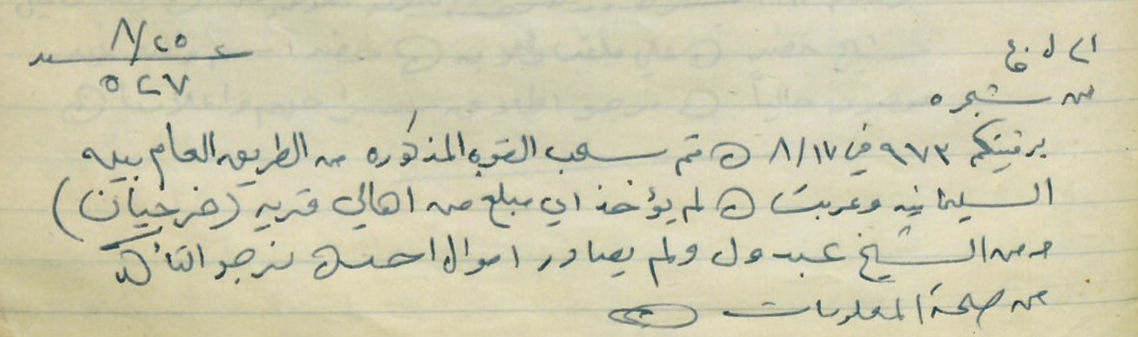 ٨/٢٥
٥٢٧
الى ل ق ع
من شجره
برقيتكم ٩٧٣ في ٨/١٧ ⊙ تم سحب القوه المذكوره من الطريق العام بين
السليمانيه وعربت ⊙ لم يؤخذ اي مبلغ من اهالي قريه (خرجيان)
من الشيخ عبدول ولم يصادر اموال احد ⊙ نرجو التأكد
من صحة المعلومات ⊙